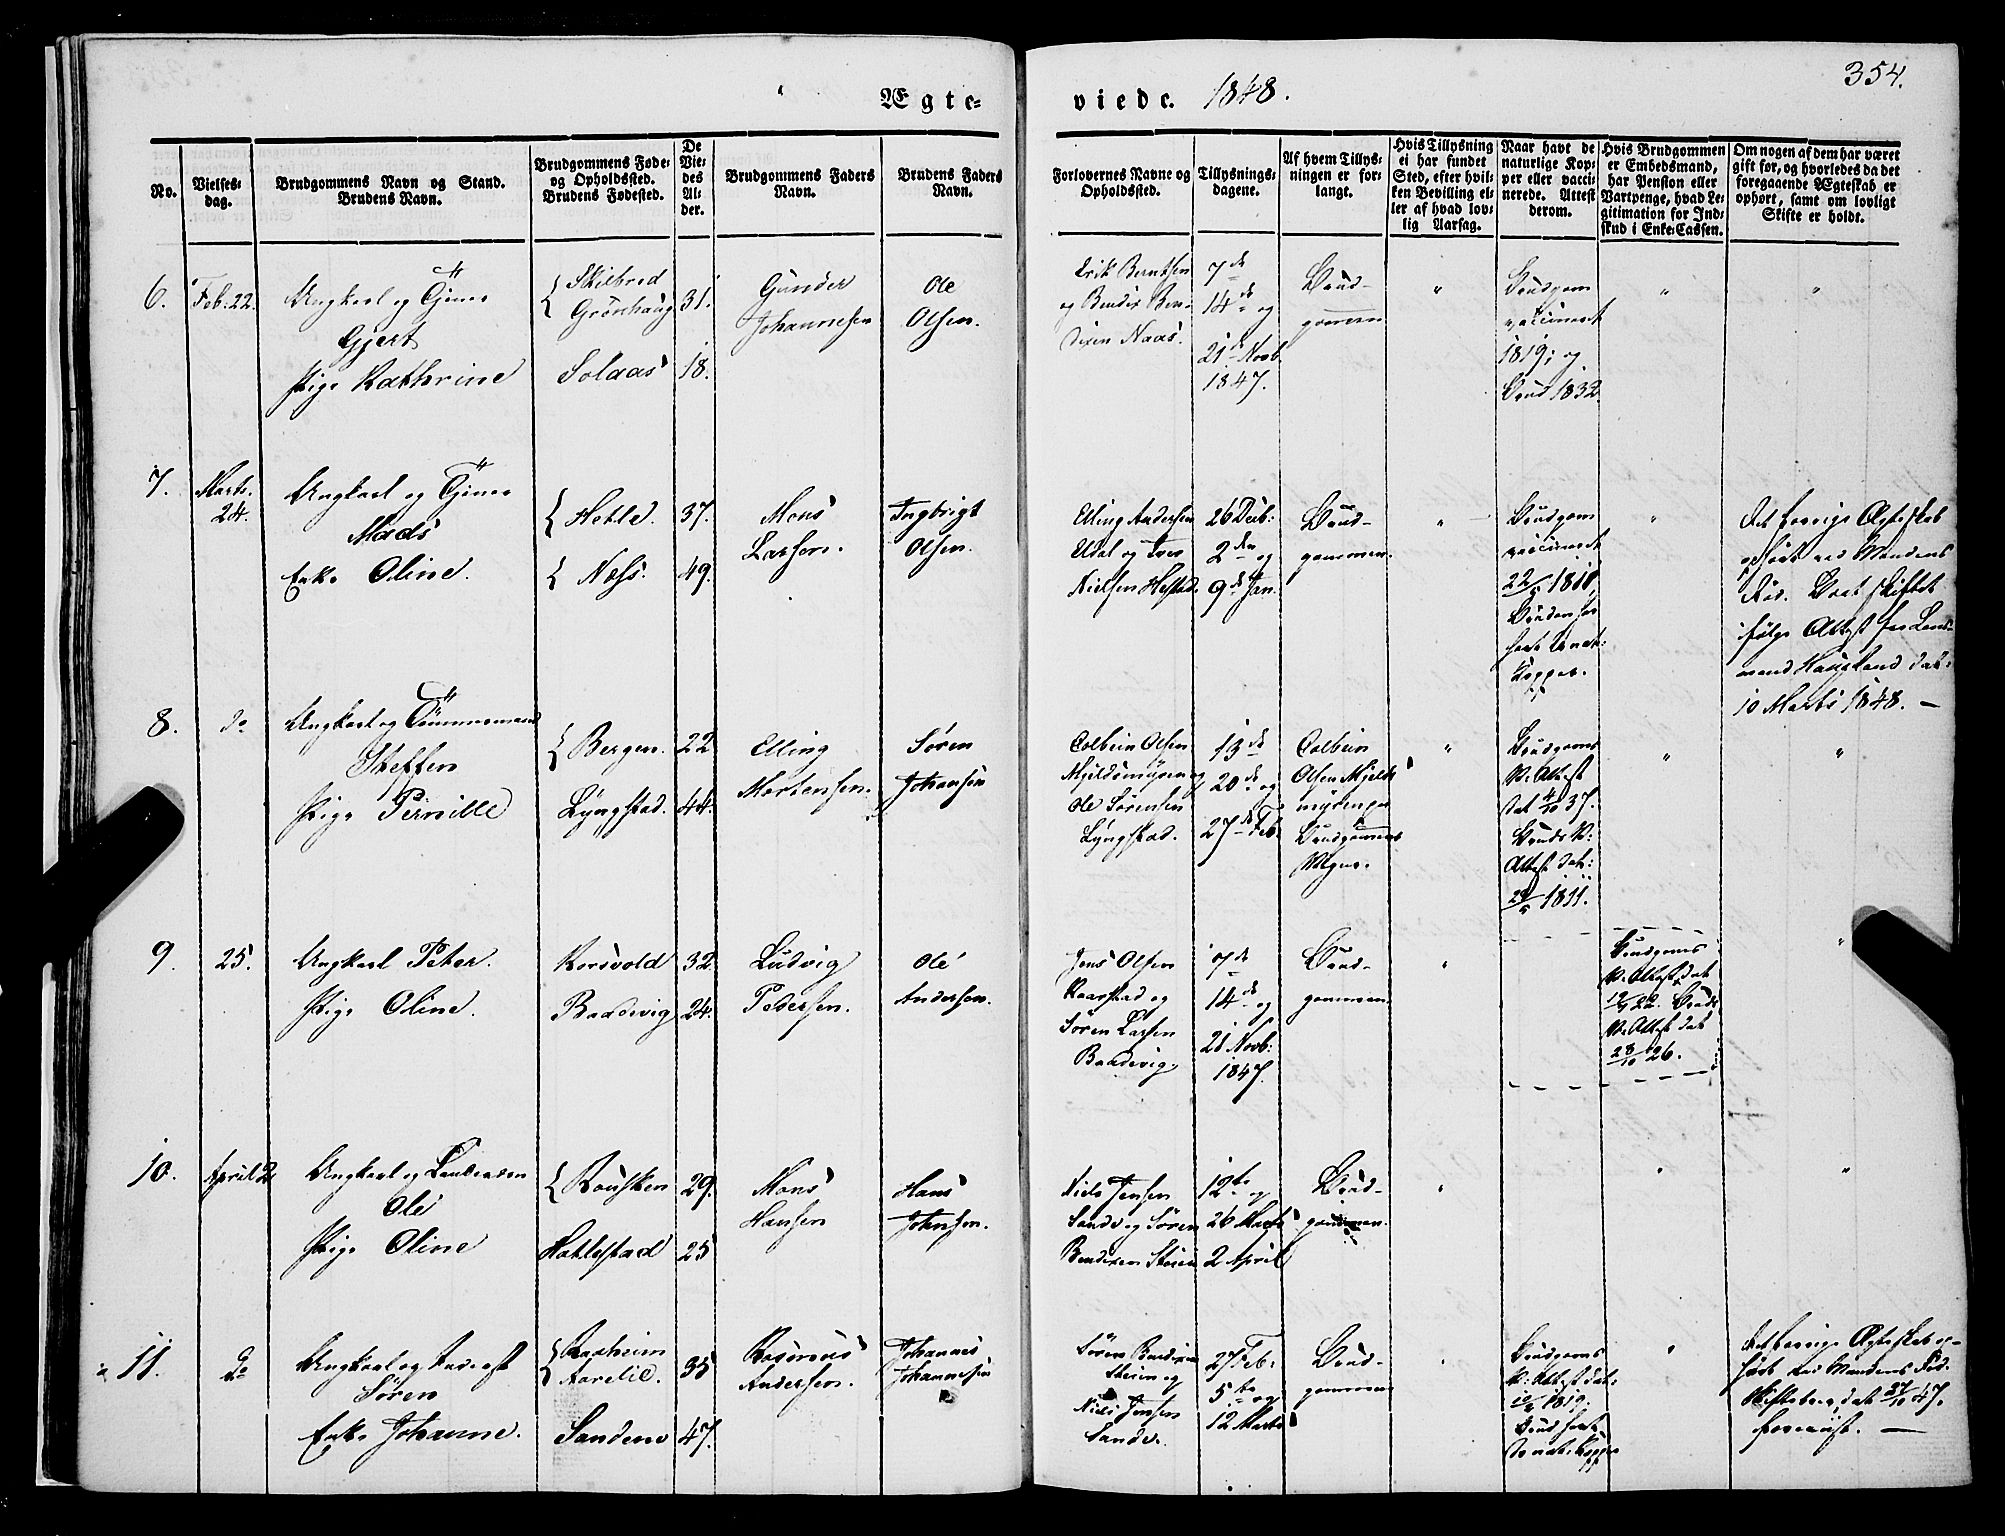 354.
Ægte-
viede. 1848.
No.
Vielses-
dag.
Brudgommens Navn og Stand.
Brudens Navn.
Brudgommens Føde-
og Opholdssted.
Brudens Fødested.
De
Vie-
des
Al-
der.
Brudgommens Faders
Navn.
Brudens Faders
Navn.
Forlovernes Navne og
Opholdssted.
Tillysnings-
dagene.
Af hvem Tillys-
ningen er for-
langt.
Hvis Tillysning
ei har fundet
Sted, efter hvil-
ken Bevilling el-
ler af hvad lov-
lig Aarsag.
Naar havt de
naturlige Kop-
per eller vacci-
nerede. Attest
derom.
Hvis Brudgommen
er Embedsmand,
har Pension eller
Vartpenge, hvad Le-
gitimation for Ind-
skud i Enke-Cassen.
Om nogen af dem har været
gift før, og hvorledes da det
foregaaende Ægteskab er
ophørt, samt om lovligt
Skifte er holdt.
6.
Feb: 22.
Ungkarl og
Gjert
Pige Kathrine
Skilbred
Grønhaug
Solaas
31.
18.
Gunder
Johannesen
Ole
Olsen.
Erik Berntsen
og Bendix Ben-
dixen Naas.
7de
14de og
21de Novb.
1847.
Brud-
gommen
"
Brudgom
vaccineret
1819; og
Brud 1832.
"
"
7.
Marts.
24.
Ungkarl og
Mads
Enke Oline.
Hetle.
Næss.
37.
49.
Mons
Larsen.
Ingbrigt
Olsen.
Elling Andersen
og Iver
Nielsen Hestad.
26 Decb:
2den og
9de Jan.
Brud-
gommen.
"
Brudgom
vaccineret
1818,
Bruden har
havt nat:
Kopper.
"
Det forrige Ægteskab
ophørt ved Mandens
Død. Boet skiftet
ifølge Attest fra Lens-
mand Haugland dat:
10 Marts 1848. —
8.
do
Ungkarl og Tømmermand
Steffen
Pige Pernille
Bergen.
Lyngstad.
22
44.
Elling
Mortensen.
Søren
Johansen
Colbein Olsen
Mjeldemyren og
Ole Sørensen
Lyngstad.
13de
20de og
27de Feb.
Colbein
Olsen Mjelde-
myren paa
Brudgommens
Vegne.
"
Brudgoms
V: Attest
dat 4/10 37.
Bruds V:
Attest dat:
1811.
"
"
9.
25.
Ungkarl Peter.
Pige Oline.
Korsvold
Baadsvig
32.
24.
Ludvig
Pedersen.
Ole
Andersen.
Jens Olsen
Kaarstad og
Søren Larsen
Baadsvig.
7de
14de og
21 Novb:
1847.
Brud-
gommen.
"
Brudgoms
V: Attest dat
22. Bruds
V: Attest dat
28/10 26.
"
10.
April 2
Ungkarl og
Ole
Pige Oline
Rousken
Hatlestad
29.
25
Mons
Hansen
Hans
Johnsen.
Niels Jensen
Sande og Søren
Bendixen Steien
12te og
26 Marts
2 April
Brud-
gommen.
"
"
"
11.
do
Ungkarl og Inderst
Søren
Enke Johanne.
Aarelid.
Sandene
35
47.
Rasmus
Andersen.
Johannes
Johannesen
Søren Bendixen
Steien og
Niels Jensen
Sande.
27 Feb:
5te og
12 Marts
Brud-
gommen
"
Brudgoms
V: Attest dat:
1819;
Brud havt
nat: Kopper
"
Det forrige Ægteskab op-
hørt ved Mandens Død.
Skiftebrev dat 27/10 47.
foreviist. —